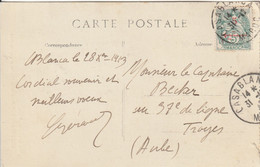 CARTE POSTALE
Correspondance
Adresse
Blanca le 28 Xbre 1913
Cordial souvenir et
meilleurs voeux
Monsieur le Capitaine
Becker
au 37e de ligne
Troyes
(Aube)
CASABLANCA
14 *
31